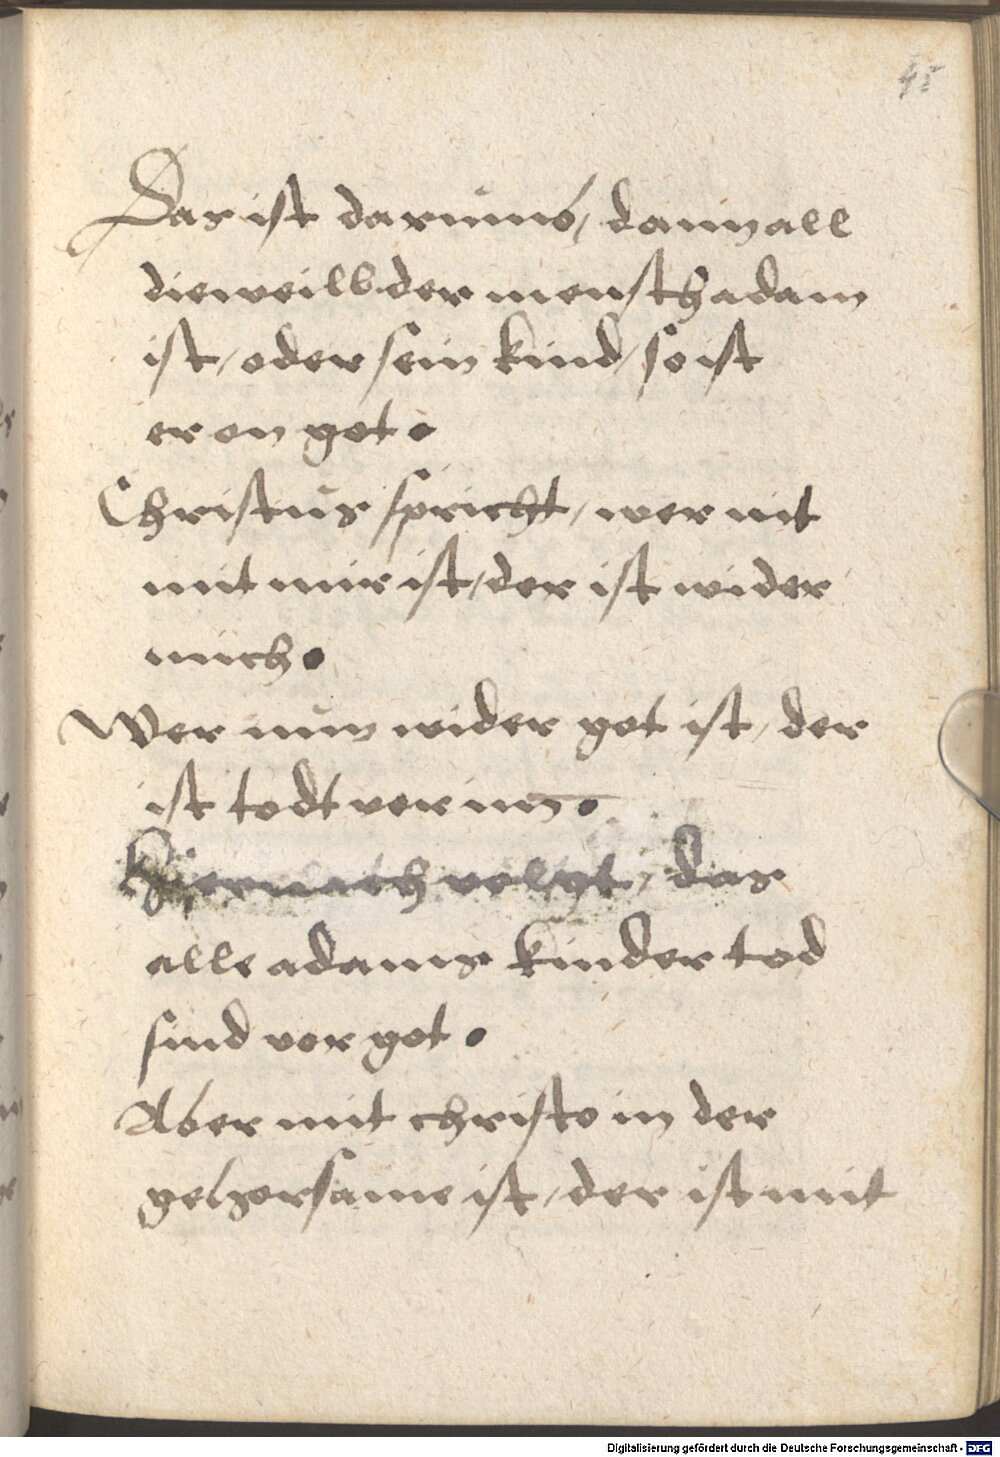 45
Das ist darumb / dann all
dieweill der mensch adam
ist / oder sein kind / so ist
er on got .
Christus spricht / wer nit
mit mir ist / der ist wider
mich .
Wer nun wider got ist / der
ist todt vor im .
Hiernach volgt / das
alle adams kinder tod
sind vor got .
Aber mit christo in der
gehorsame ist / der ist mit
Digitalisierung gefördert durch die Deutsche Forschungsgemeinschaft - DFG